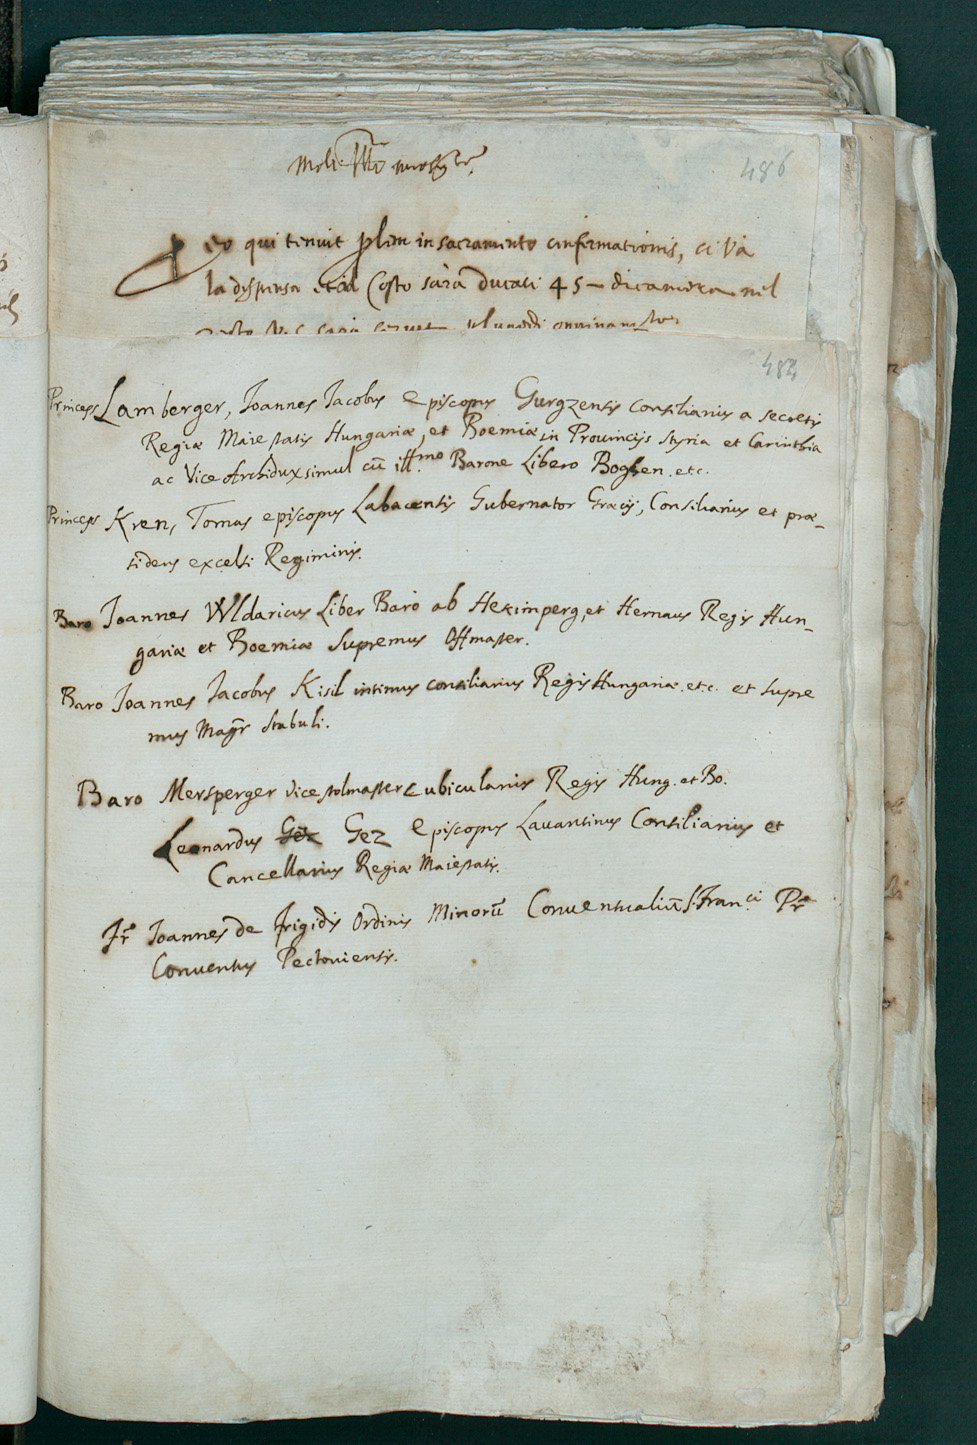 486
Pro eo qui tenuit prolem in sacramento confirmationis, ci và
la dispensa et il Costo sarà Ducati 45 - di camera nel
483
Princeps Lamberger, Ioannes Iacobus Episcopus Gurgzensis consilianius a secretis
Regiæ Maiestatis Hungariæ, et Boemiæ in Prouincijs Styria et Carinthia
ac Vice Archidux simul cū ill.mo Barone Libero Boghen. etc.
Princeps Kren, Tomas episcopus Labacensis Gubernator Græcij, Consilianius et præ-
sidens excelsi Regiminis.
Baro Ioannes Wldaricus Liber Barò ab Hekimperg, et Hernaus Regis Hun-
gariæ et Boemiæ Supremus Offmaster.
Baro Ioannes Iacobus Kisil intimus consiliarius Regis Hungariæ. etc. et supre
mus Magr stabuli.
Baro Mersperger vice stolmaster cubicularius Regis Hung. et Bo.
Leonardus Gez Gez Episcopus Lauantinus Consilianius et
Cancellarius Regiæ Maiestatis.
Fr Ioannes de frigidis Ordinis Minorū Conuentualiū S. Fran.ci Pr
Conuentus Pectouiensis.